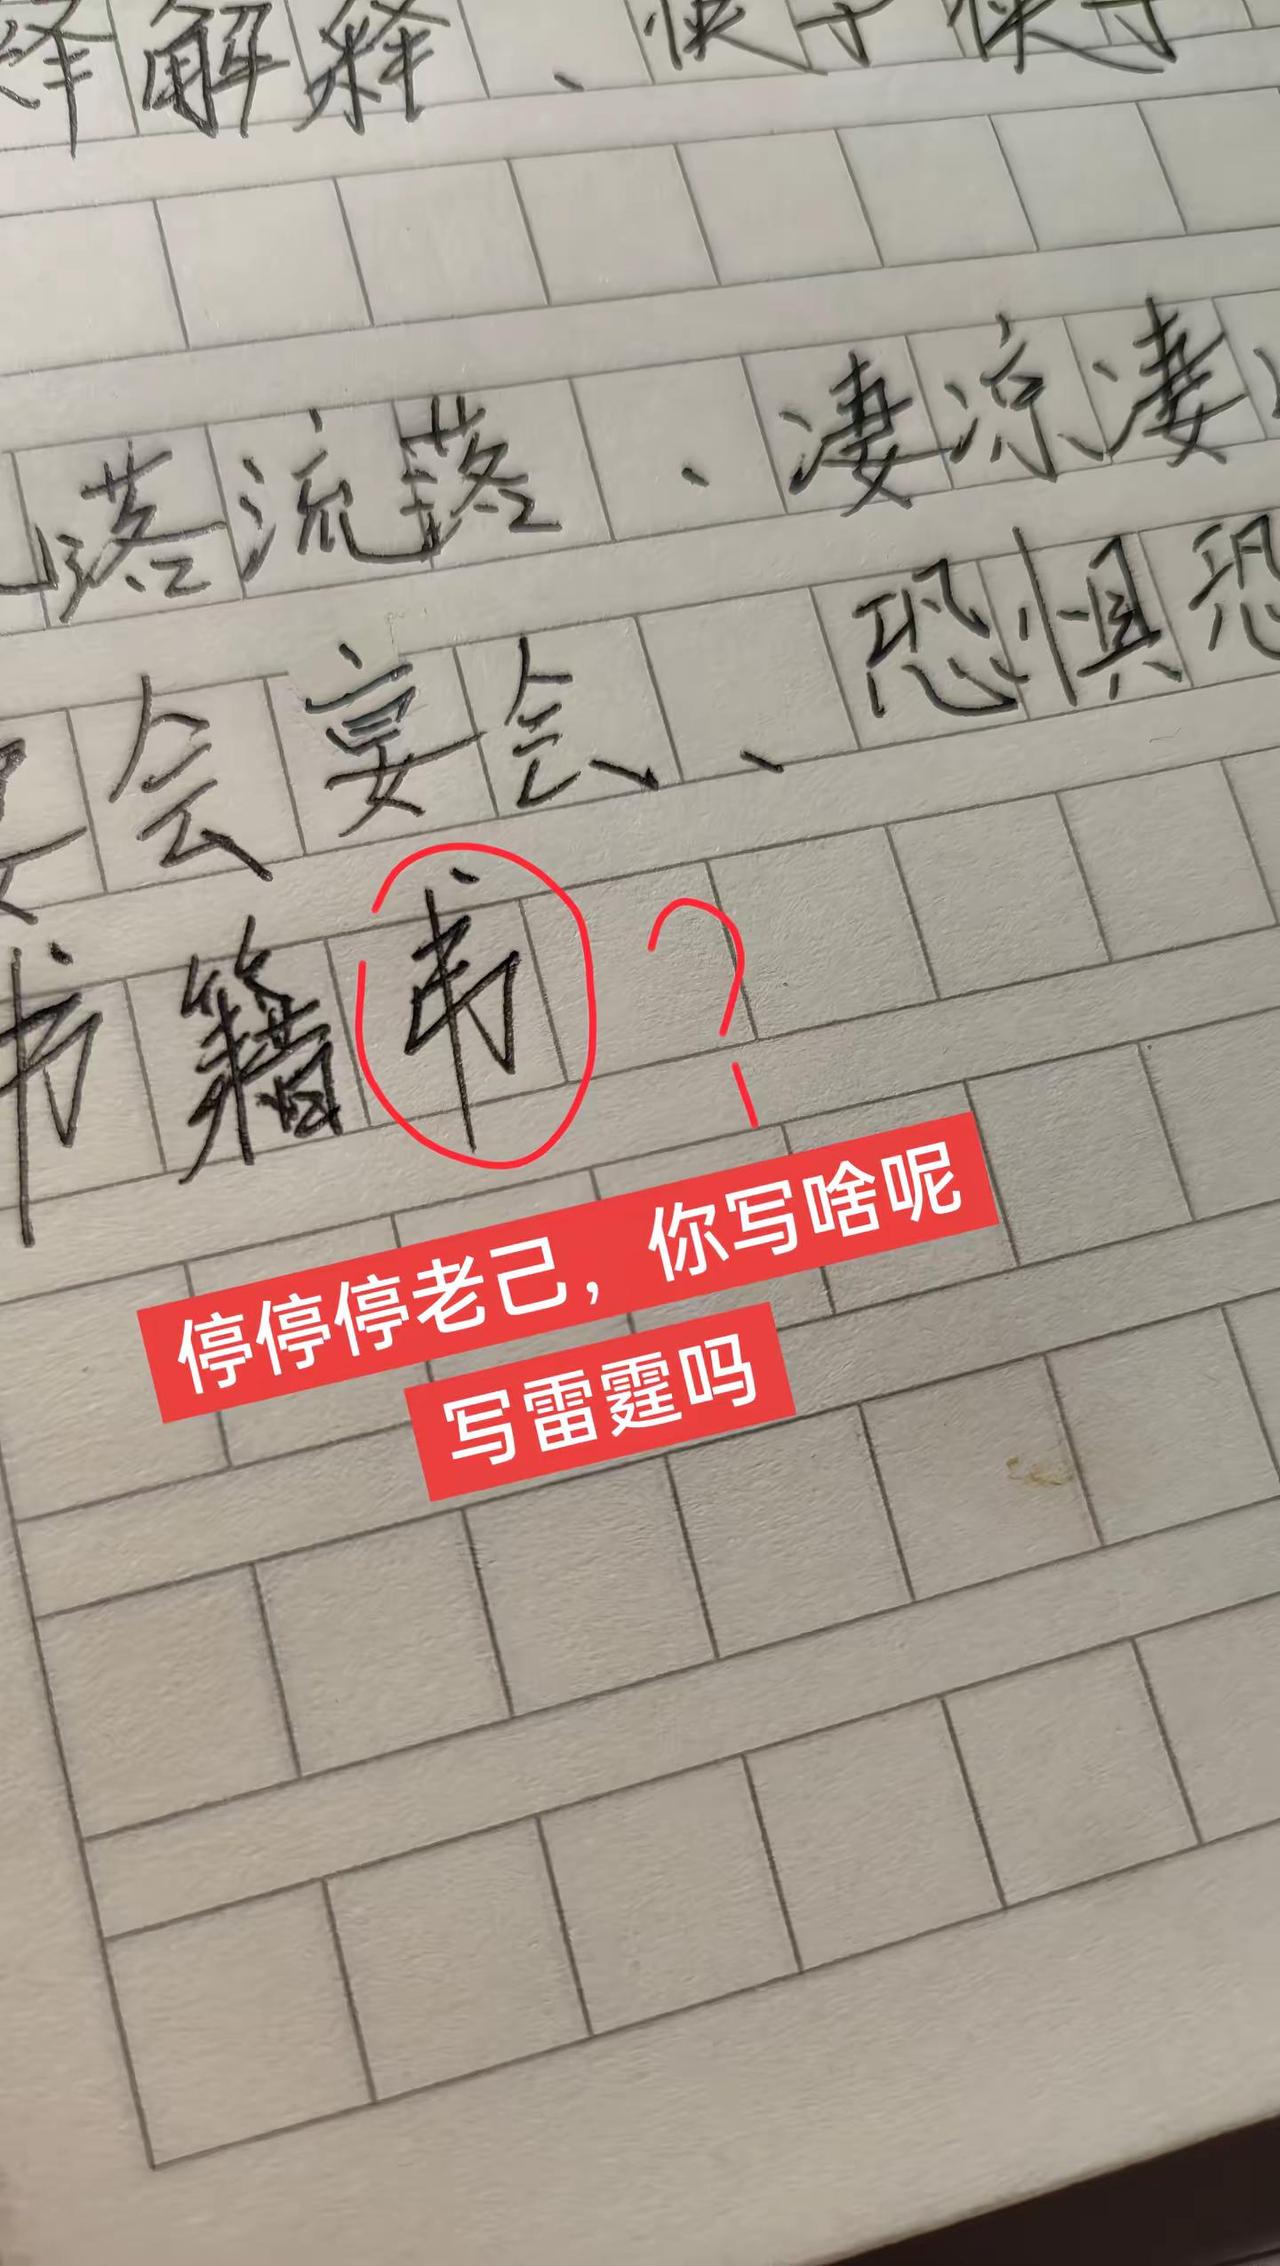 解释、使于使于
落流落、凄凉凄
会宴会、恐惧恐
书籍
停停停老己，你写啥呢
写雷霆吗